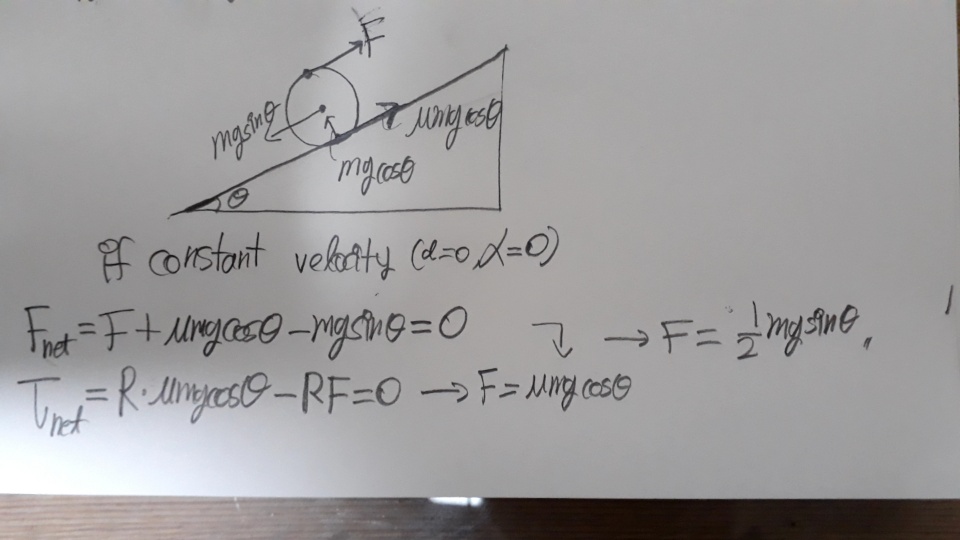 F
mgsinθ
μmgcosθ
mgcosθ
θ
if constant velocity (a=0, α=0)
F_net = F + μmgcosθ - mgsinθ = 0
→ F = 1/2 mgsinθ
τ_net = R·μmgcosθ - RF = 0 → F = μmgcosθ